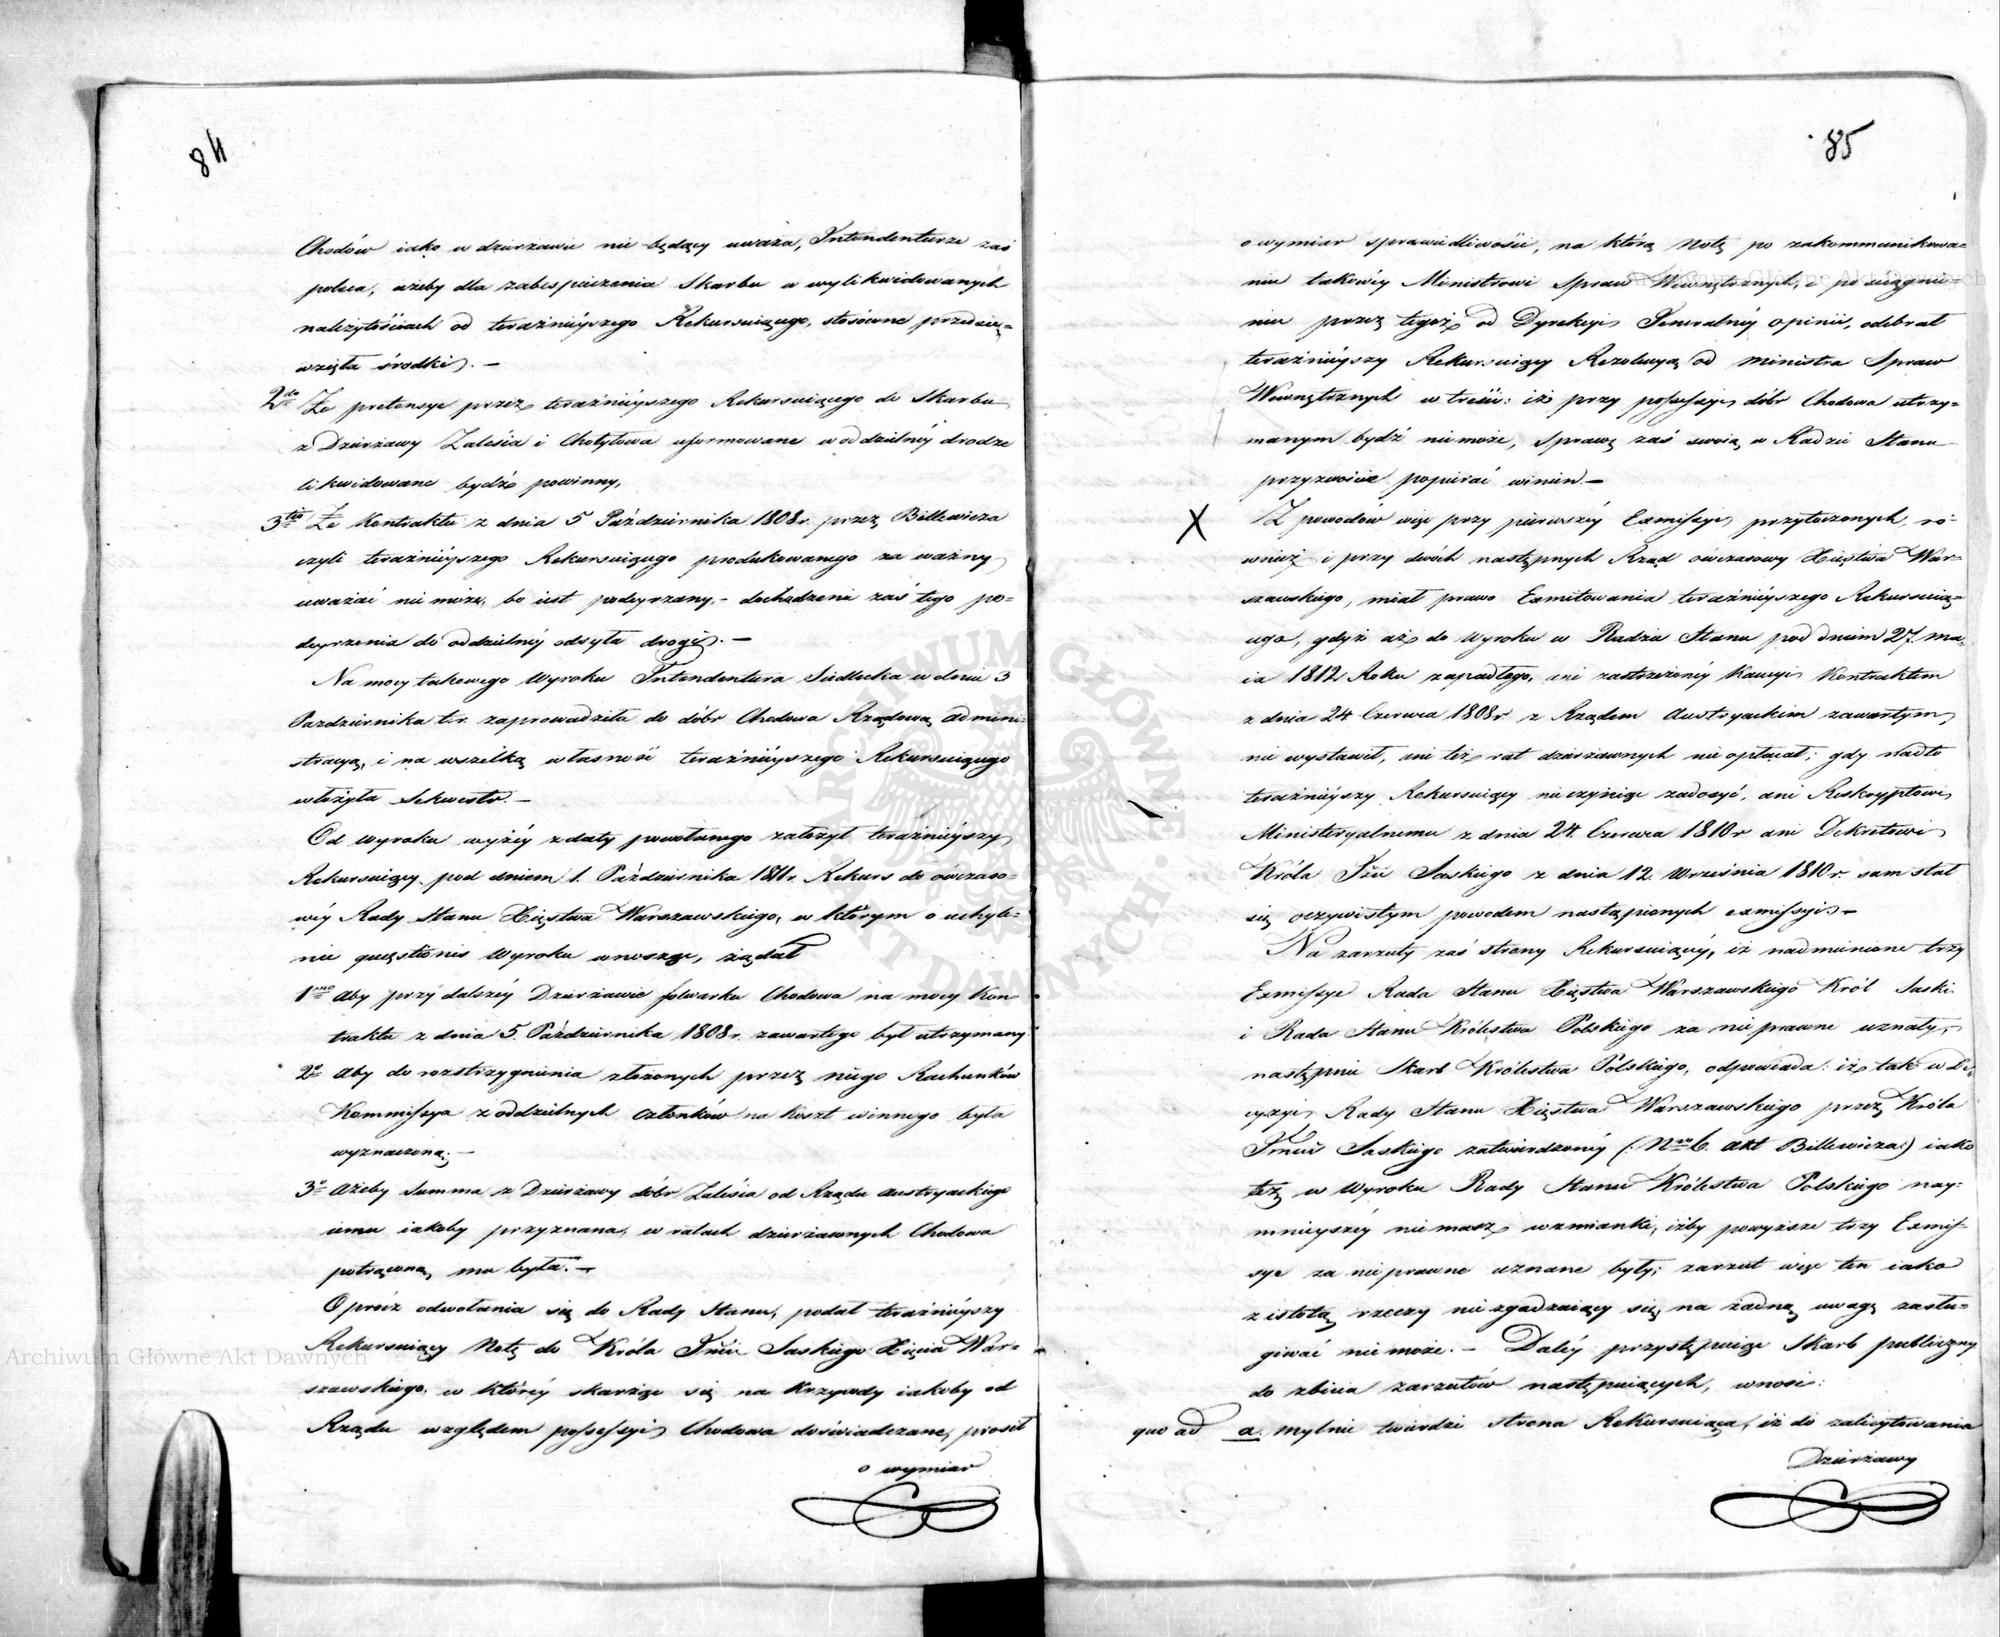 84
Chodów iako w dzierzawie nie będący uważa, Intendenturze zaś
poleca, ażeby dla zabespieczenia Skarbu w wylikwidowanych
należytościach od teraźnieyszego Rekursuiącego, stosowne przedsię=
wzięła środki. —
2do Że pretensye przez teraźnieyszego Rekursuiącego do Skarbu
z Dzierzawy Zalesia i Chotyłowa uformowane w oddzielnéy drodze
likwidowane bydź powinny,
3tio Że Kontraktu z dnia 5 Października 1808r. przez Billewicza
czyli teraźnieyszego Rekursuiącego produkowanego za ważny
uważać nie może, bo iest podeyrzany, - dochodzenie zaś tego po=
deyrzenia do oddzielnéy odsyła drogi. —
Na mocy takowego Wyroku Intendentura Siedlecka w dniu 3
Pazdziernika t.r. zaprowadziła do dóbr Chodowa Rządową admini=
stracyą, i na wszelką własność teraźnieyszego Rekursuiącego
włożyła Sekwestr. —
Od Wyroku wyżéy z daty powołanego założył teraźnieyszy
Rekursuiący pod dniem 1. Października 1811r. Rekurs do ówczaso=
wéy Rady Stanu Xięstwa Warszawskiego, w którym o uchyle=
nie quęstionis Wyroku wnosząc, żądał
1mo Aby przy dalszéy Dzierżawie folwarku Chodowa na mocy Kon=
traktu z dnia 5. Października 1808r. zawartego był utrzymany
2o Aby do rozstrzygnienia złożonych przez niego Rachunków
Kommissya z oddzielnych Członków na koszt winnego była
wyznaczoną; —
3o Ażeby Summa z Dzierżawy dóbr Zalesia od Rządu Austryackiego
iemu iakoby przyznana, w ratach dzierżawnych Chodowa
potrąconą mu była. —
Oprócz odwołania się do Rady Stanu, podał teraźnieyszy
Rekursuiący Notę do Króla Jmći Saskiego Xięcia War=
szawskiego, w którey skarżąc się na krzywdy iakoby od
Rządu względem possessyi Chodowa doświadczane, prosił
o wymiar
85
o wymiar sprawiedliwości, na którą Notę po zakommunikowa=
niu takowéy Ministrowi Spraw Wewnętrznych, i po ściągnie=
niu przez tegoż od Dyrekcyi Generalnéy opinii, odebrał
teraźnieyszy Rekursuiący Rezolucyą od Ministra Spraw
Wewnętrznych w treści: iż przy possessyi dóbr Chodowa utrzy=
manym bydź nie może, Sprawę zaś swoią w Radzie Stanu
przyzwoicie popierać winien. —
X Z powodów więc przy pierwszéy Exmissyi przytoczonych, ró=
wnież i przy dwóch następnych Rząd ówczasowy Xięstwa War=
szawskiego, miał prawo Exmitowania teraźnieyszego Rekursuią=
cego, gdyż aż do Wyroku w Radzie Stanu pod dniem 27. Ma=
ia 1812 Roku zapadłego, ani zastrzeżonéy Kaucyi Kontraktem
z dnia 24 Czerwca 1808r. z Rządem Austryackim zawartym,
nie wystawił, ani też rat dzierżawnych nie opłacał; gdy nadto
teraźnieyszy Rekursuiący nie czyniąc zadosyć, ani Reskryptowi
Ministeryalnemu z dnia 24. Czerwca 1810r. ani Dekretowi
Króla Jmći Saskiego z dnia 12. Września 1810r. sam stał
się oczywistym powodem nastąpionych exmissyi. —
Na zarzuty zaś strony Rekursuiącéy, iż nadmienione trzy
Exmissye Rada Stanu Xięstwa Warszawskiego Król Saski
i Rada Stanu Królestwa Polskiego za nieprawne uznały,
następnie Skarb Królestwa Polskiego, odpowiada: iż tak w De=
cyzyi Rady Stanu Xięstwa Warszawskiego przez Króla
Jmci Saskiego zatwierdzonéy (: Nro 6. akt Billewicza:) iako
też w Wyroku Rady Stanu Królestwa Polskiego nay=
mnieyszéy niemasz wzmianki, iżby powyższe trzy Exmis=
sye za nieprawne uznane były; zarzut więc ten iako
z istotą rzeczy nie zgadzaiący się, na żadną uwagę zasłu=
giwać nie może. — Daléy przystępuiąc Skarb publiczny
do zbicia zarzutów następuiących, wnosi:
quo ad a. mylnie twierdzi strona Rekursuiąca, iż do zalicytowania
Dzierżawy
Archiwum Główne Akt Dawnych
Archiwum Główne Akt Dawnych
ARCHIWUM GŁÓWNE AKT DAWNYCH